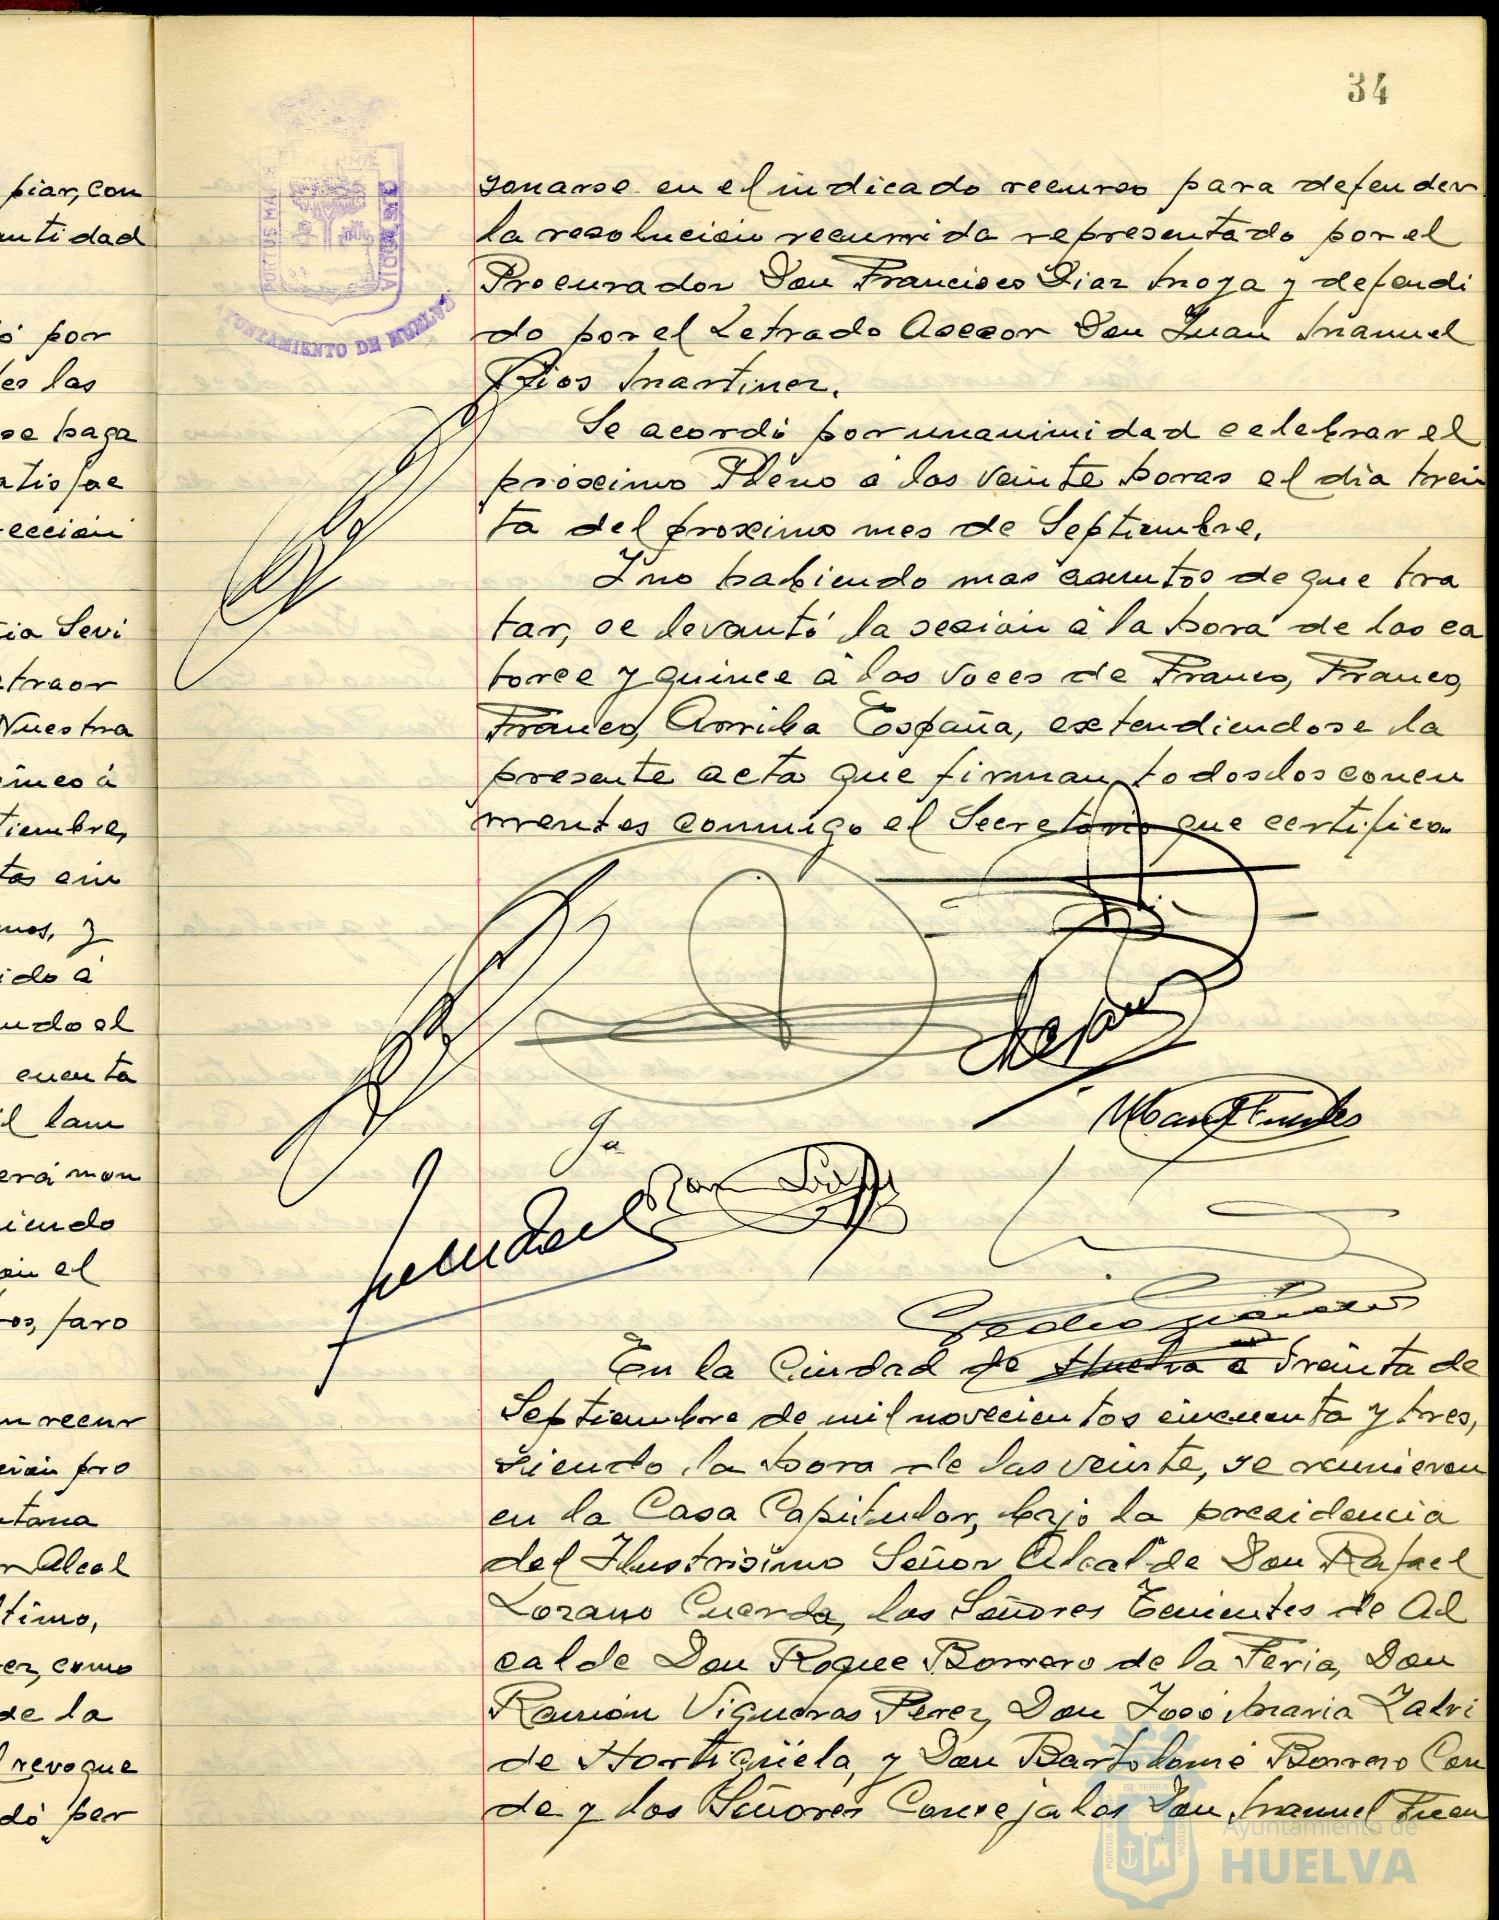 34
piar, con
untidad
ó por
des las
se haga
atisfac
rección
cia Sevi
traor
Nuestra
tiembre,
tos cin
mos, y
ido á
ndo el
cuenta
il lam
erá mon
iendo
on el
ros, faro
un recur
ción pro
tana
r Alcal
timo,
rez, como
de la
revoque
dó per
PORTUS MARIS
ET TERRAE
CUSTODIA
AYUNTAMIENTO DE HUELVA
sonarse en el indicado recurso para defender
la resolución recurrida representado por el
Procurador Don Francisco Diaz Moya y defendi
do por el Letrado Asesor Don Juan Manuel
Rios Martinez.
Se acordó por unanimidad celebrar el
próximo Pleno á las veinte horas el día trein
ta del proximo mes de Septiembre.
Y no habiendo mas asuntos de que tra
tar, se levantó la sesion á la hora de las ca
torce y quince á las voces de Franco, Franco,
Franco, Arriba España, extendiendose la
presente acta que firman todos los concu
rrentes conmigo el Secretario que certifico.
En la Ciudad de Huelva á treinta de
Septiembre de mil novecientos cincuenta y tres,
siendo la hora de las veinte, se reunieron
en la Casa Capitular, bajo la presidencia
del Ilustrisimo Señor Alcalde Don Rafael
Lozano Cuerda, los Señores Tenientes de Al
calde Don Roque Borrero de la Feria, Don
Ramón Vigueras Perez, Don José Maria Zalvi
de Hortigüela, y Don Bartolomé Borrero Con
de y los Señores Concejales Don Manuel Fuen
Ayuntamiento de
HUELVA